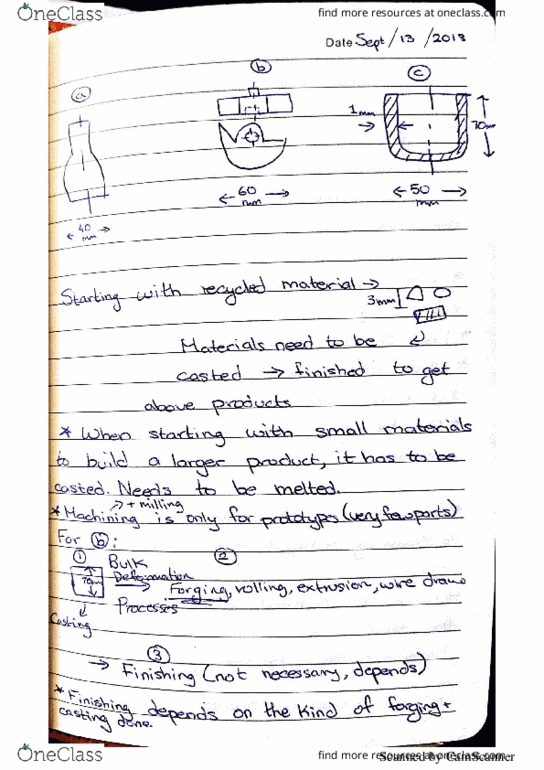 OneClass
find more resources at oneclass.com
Date Sept/13/2018
a
b
c
1mm
70mm
60 mm
50 mm
40 mm
Starting with recycled material →
3mm
Materials need to be
casted → finished to get
above products
* When starting with small materials
to build a larger product, it has to be
casted. Needs to be melted.
→ + milling
* Machining is only for prototypes (very few parts)
For b:
1
Bulk
2
70mm
Deformation
Forging, rolling, extrusion, wire draw
Processes
Casting
3
→ Finishing (not necessary, depends)
* Finishing depends on the kind of forging +
casting done.
OneClass
find more resources at oneclass.com
Scanned by CamScanner